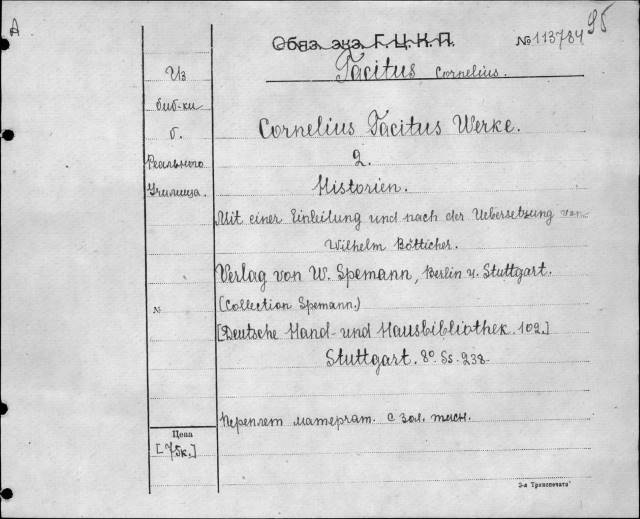 А
Обяз. экз. Г.Ц.К.П.
№113784
95
Tacitus Cornelius.
Из
биб-ки
б.
Реального
Училища.
Cornelius Tacitus Werke.
2.
Historien.
Mit einer Einleitung und nach der Uebersetzung von
Wilhelm Bötticher.
Verlag von W. Spemann, Berlin u. Stuttgart.
(Collection Spemann.)
№
[Deutsche Hand- und Hausbibliothek. 102.]
Stuttgart. 8º. Ss. 238.
Переплет матерчат. с зол. тисн.
Цена
[75к.]
3-я Транспечать